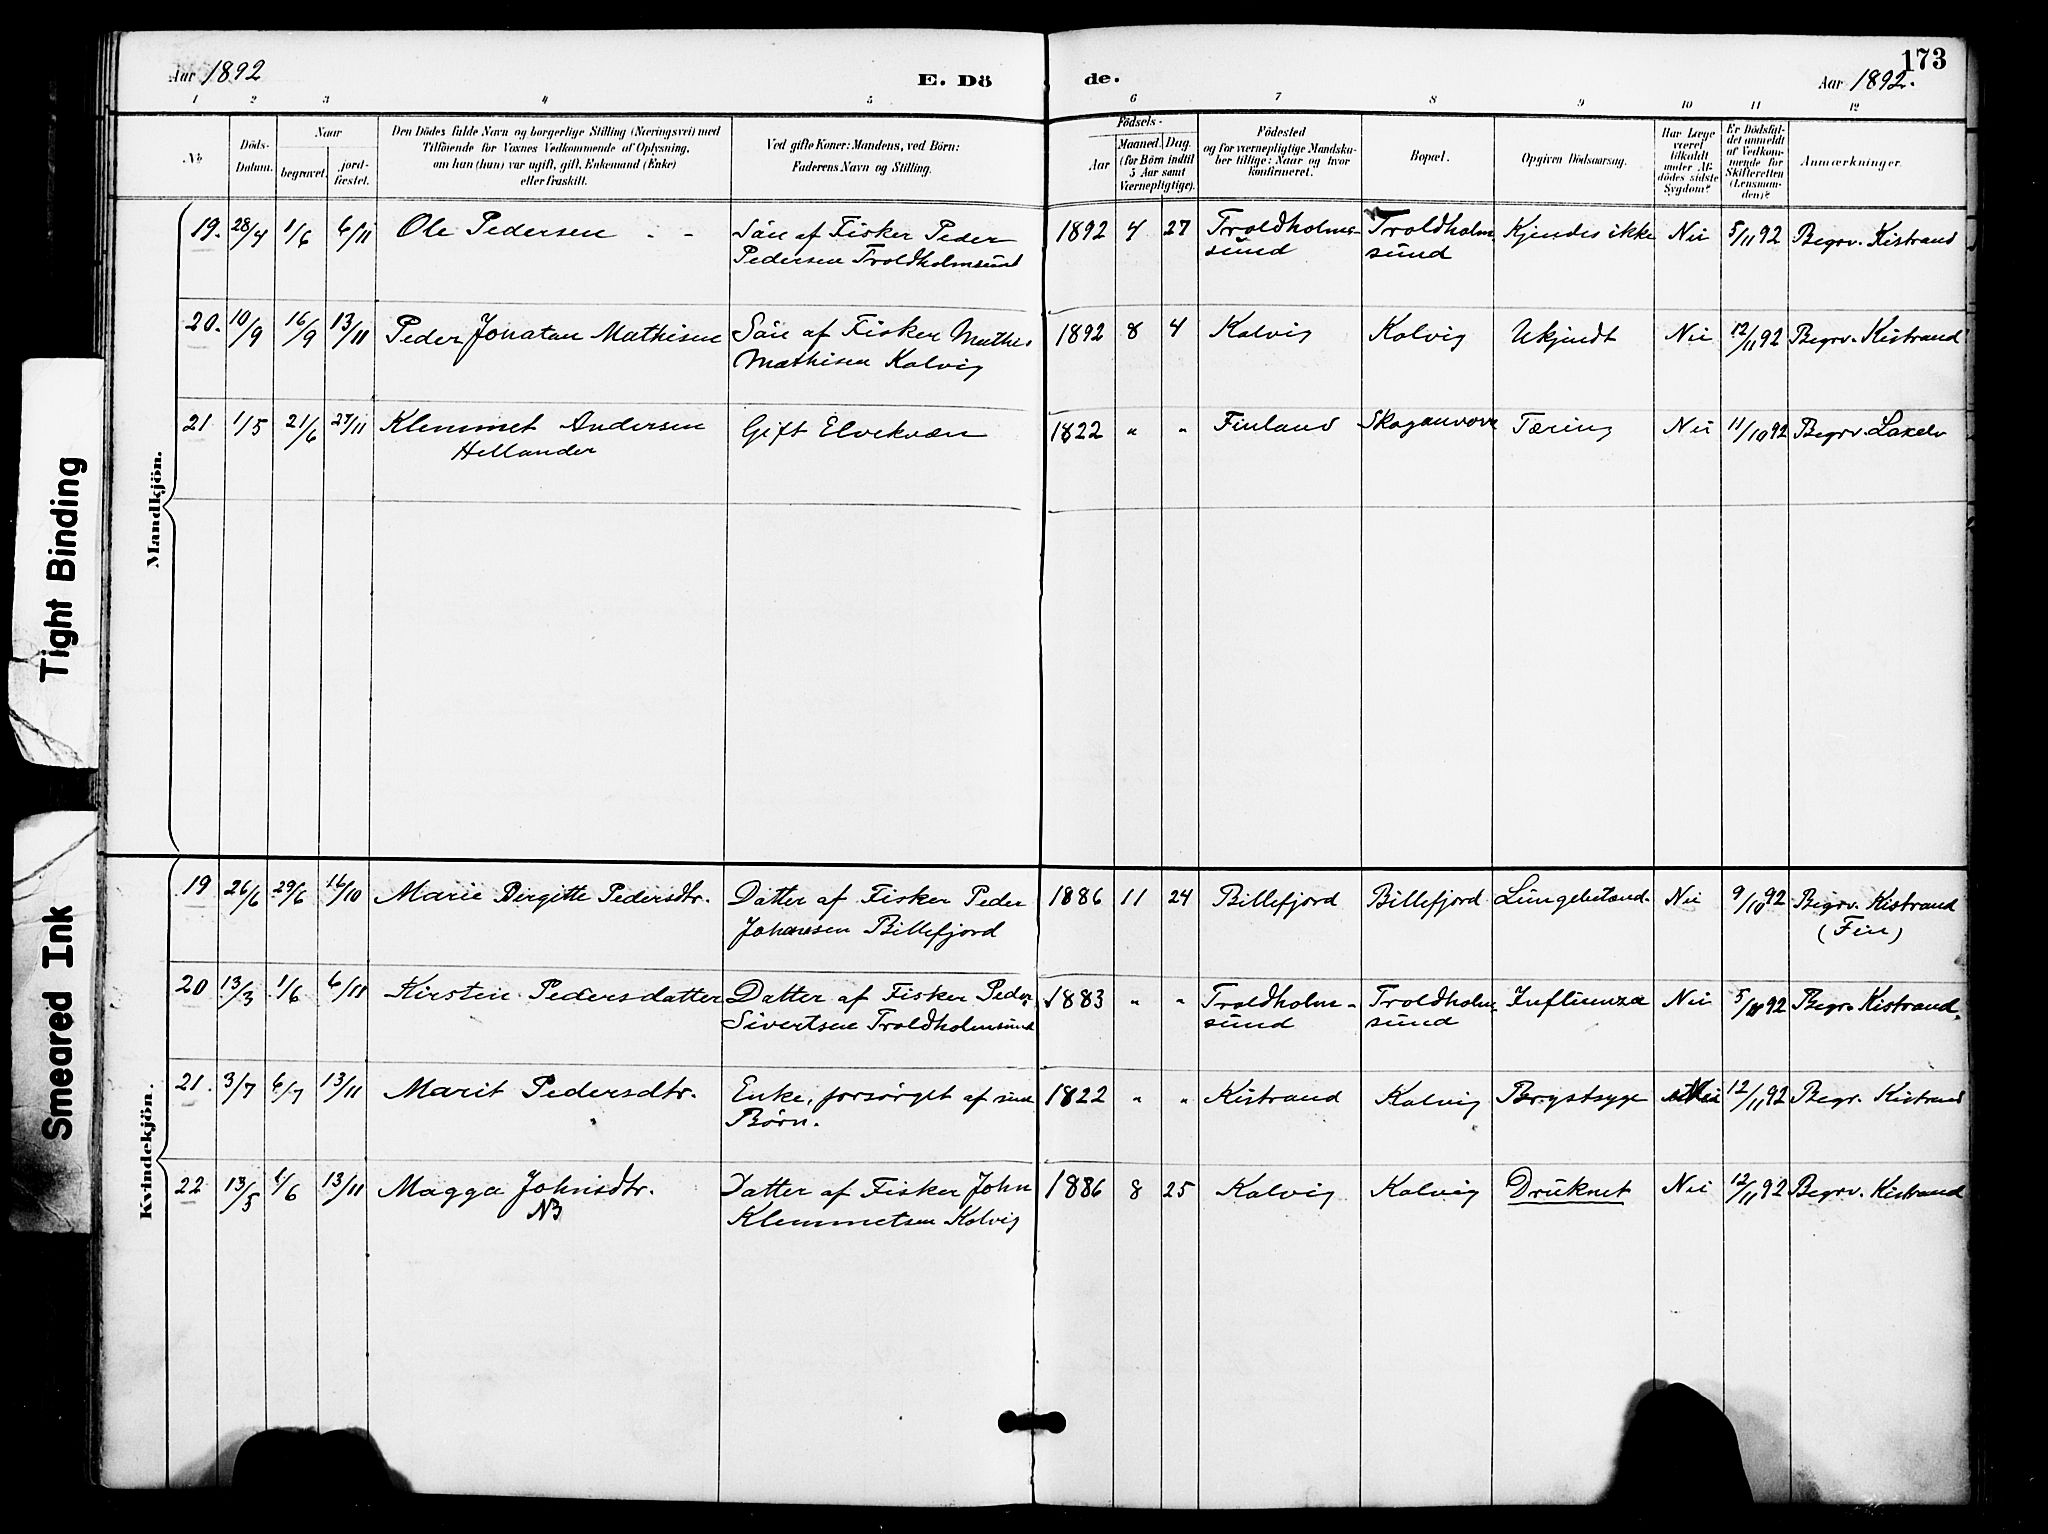 173
Aar 1892
E. Dö
de.
Aar 1892.
1 2 3 4 5 6 7 8 9 10 11 12
No
Döds-
Datum.
Naar
begravet.
jord-
fæstet.
Den Dödes fulde Navn og borgerlige Stilling (Næringsvei) med
Tilföiende for Voxnes Vedkommende af Oplysning,
om han (hun) var ugift, gift, Enkemand (Enke)
eller fraskilt.
Ved gifte Koner: Mandens, ved Börn:
Faderens Navn og Stilling.
Födsels-
Aar
Maaned.
Dag.
(for Börn indtil
5 Aar samt
Værnepligtige).
Födested
og for værnepligtige Mandska-
ber tillige: Naar og hvor
konfirmeret.
Bopæl.
Opgiven Dödsaarsag.
Har Læge
været
tilkaldt
under Af-
dödes sidste
Sygdom?
Er Dödsfal-
det anmeldt
af Vedkom-
mende for
Skifteretten
(Lensman-
den)?
Anmærkninger.
Mandkjön.
19. 28/4 1/6 6/11 Ole Pedersen - - Sön af Fisker Peder 1892 4 27 Troldholm- Troldholm Kjendes ikke Nei 5/11 92 Begrv. Kistrand
Pedersen Troldholmsund sund sund
20. 10/9 16/9 13/11 Peder Jonatan Mathisen Sön af Fisker Mathis 1892 8 4 Kolvig Kolvig Ukjendt Nei 12/11 92 Begrv. Kistrand
Mathisen Kolvig
21 1/5 21/6 27/11 Klemmet Andersen Gift Elvekvæn 1822 " " Finland Tæring Nei 11/10 92 Begrv. Laxelv
Hellander
Kvindekjön.
19 26/6 29/6 16/10 Marie Birgitte Pedersdtr. Datter af Fisker Peder 1886 11 24 Billefjord Billefjord Lungebetænd. Nei 9/10 92 Begrv. Kistrand
Johansen Billefjord (Fin)
20 13/3 1/6 6/11 Kirsten Pedersdatter Datter af Fisker Peder 1883 " " Troldholm- Troldholm- Influenza Nei 5/11 92 Begr. Kistrand.
Sivertsen Troldholmsund sund sund
21. 3/7 6/7 13/11 Marit Pedersdtr. Enke, forsørget af sine 1822 " " Kistrand Kolvig Brystsyge Nei 12/11 92 Begr. Kistrand
Børn.
22 13/5 1/6 13/11 Magga Johnsdtr. Datter af Fisker John 1886 8 25 Kolvig Kolvig Druknet Nei 12/11 92 Begrv. Kistrand
NB Klemmetsen Kolvig
Tight Binding
Smeared Ink